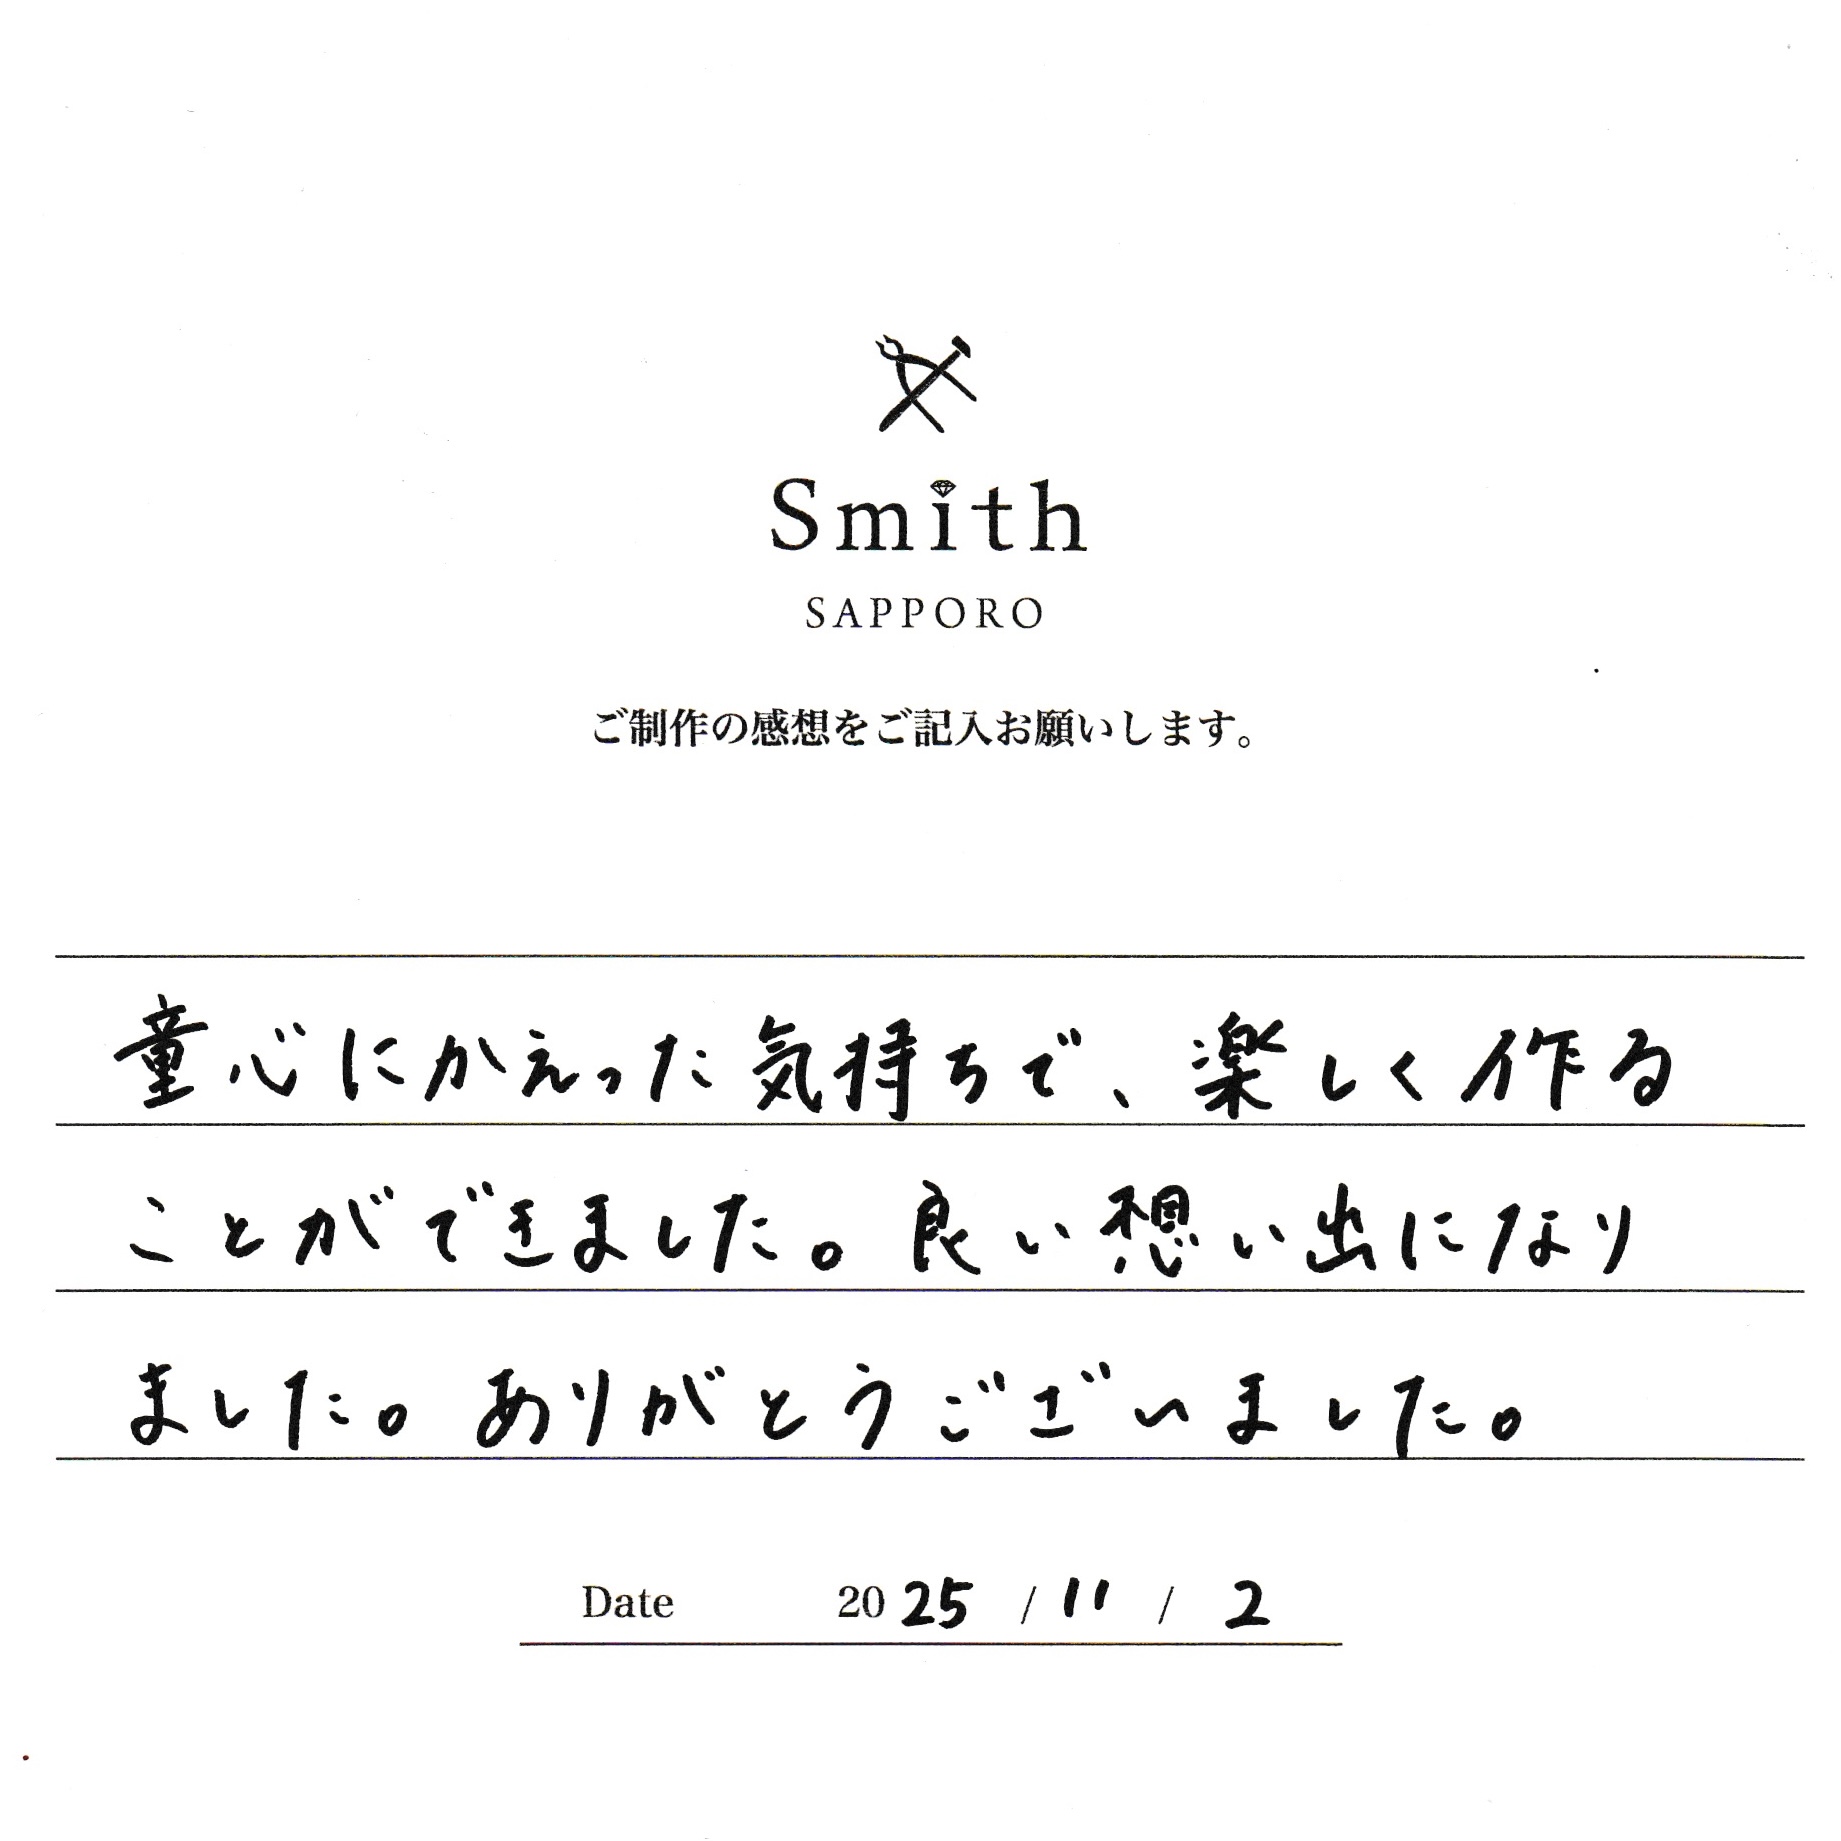 Smith
SAPPORO
ご制作の感想をご記入お願いします。
童心にかえった気持ちで、楽しく作る
ことができました。良い想い出になり
ました。ありがとうございました。
Date 2025 / 11 / 2